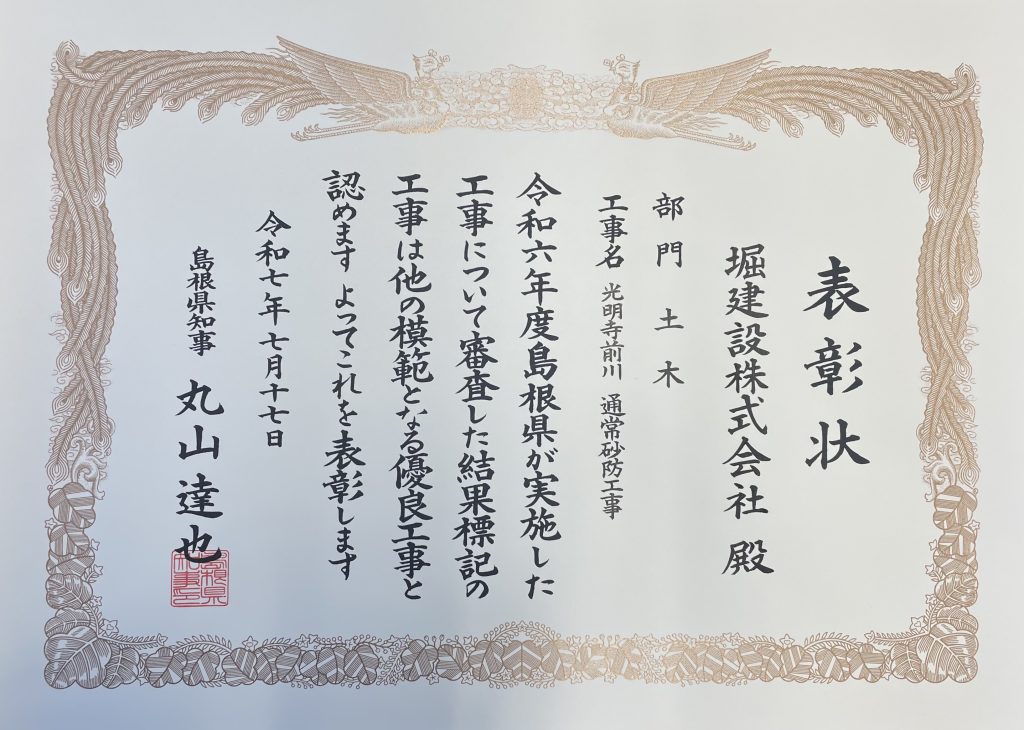 表彰状
堀建設株式会社 殿
部門 土木
工事名 光明寺前川 通常砂防工事
令和六年度島根県が実施した
工事について審査した結果標記の
工事は他の模範となる優良工事と
認めます よってこれを表彰します
令和七年七月十七日
島根県知事 丸山達也
島根県
知事之印